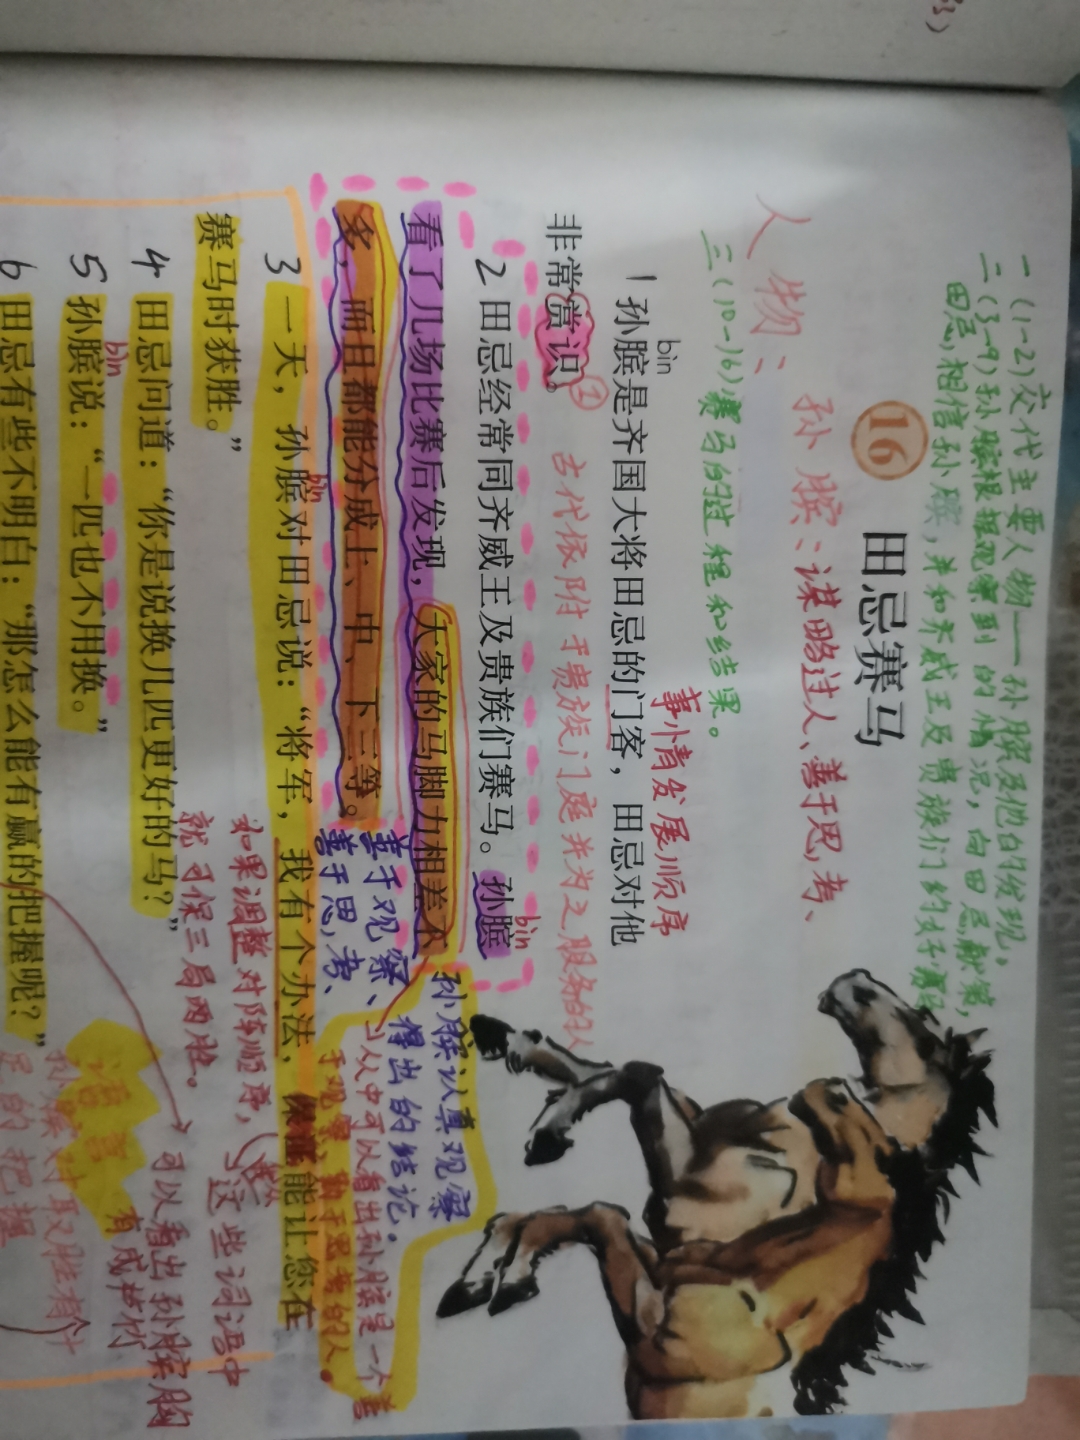 一(1-2)交代主要人物——孙膑及他的发现。
二(3-9)孙膑根据观察到的情况，向田忌献策，
田忌相信孙膑，并和齐威王及贵族们约好赛
三(10-16)赛马的过程和结果。
16 田忌赛马
人物：
孙膑：谋略过人、善于思考、
事情发展顺序
bin
1 孙膑是齐国大将田忌的门客，田忌对他
非常赏识。
① 古代依附于贵族门庭并为之服务的人
2 田忌经常同齐威王及贵族们赛马。孙膑
bin
看了几场比赛后发现，大家的马脚力相差不
多，而且都能分成上、中、下三等。
孙膑认真观察
得出的结论。
善于观察、
善于思考、
从中可以看出孙膑是一个善
于观察、勤于思考的人。
3 一天，孙膑对田忌说：“将军，我有个办法，保证能让您在
bin
赛马时获胜。”
如果调整对阵顺序，
就可保三局两胜。
这些词语中
可以看出孙膑胸
有成竹
4 田忌问道：“你是说换几匹更好的马？”
5 孙膑说：“一匹也不用换。”
bin
语言
孙膑对取胜有十
足的把握
6 田忌有些不明白：“那怎么能有赢的把握呢？”